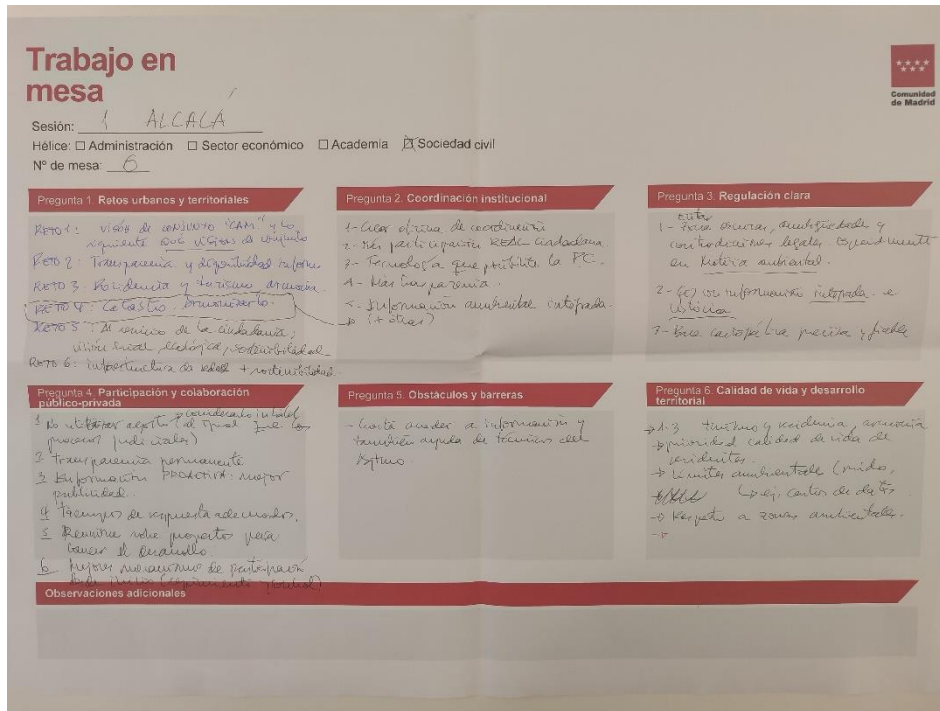 Trabajo en
mesa
Comunidad
de Madrid
Sesión: 1 ALCALÁ
Hélice: Administración Sector económico Academia Sociedad civil
Nº de mesa: 6
Pregunta 1. Retos urbanos y territoriales
RETO 1: visión de conjunto "CAM" y lo
siguiente visión de conjunto
RETO 2: Transparencia y inform
RETO 3: Residencia y turismo armonía.
RETO 4: Catastro.
RETO 5: Al servicio de la ciudadanía;
visión social, ecológica, sostenibilidad
RETO 6: infraestructura de + sostenibilidad.
Pregunta 2. Coordinación institucional
1- Crear oficina de coordinación
2- Más participación REAL ciudadana
3- Tecnología que posibilite la PC.
4- Más transparencia.
5- Información ambiental integrada.
(+ otras)
Pregunta 3. Regulación clara
1- evitar ambigüedades y
contradicciones legales especialmente
en materia ambiental.
2- información integrada e
histórica
3- Base cartográfica precisa y fiable
Pregunta 4. Participación y colaboración
público-privada
1 No utilizar
procesos judiciales)
2 Transparencia permanente
3 Información PROACTIVA: mejor
publicidad.
4 Tiempos de respuesta adecuados.
5 sobre proyectos para
conocer el desarrollo.
6 Mejores mecanismos de participación
desde inicio (seguimiento y control)
Pregunta 5. Obstáculos y barreras
- Cuesta acceder a información y
también ayuda de técnicos del
Pregunta 6. Calidad de vida y desarrollo
territorial
1-3 turismo y residencia, armonía
prioridad calidad de vida de
residentes.
Límites ambientales (ruido,
ej. centros de datos
Respeto a zonas ambientales.
Observaciones adicionales